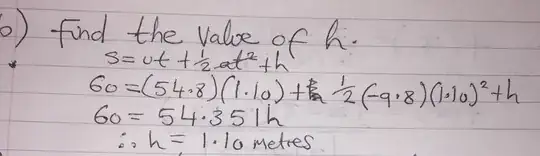 b) Find the value of h.
s = ut + ½at² + h
60 = (54.8)(1.10) + ½(-9.8)(1.10)² + h
60 = 54.351h
∴ h = 1.10 metres.